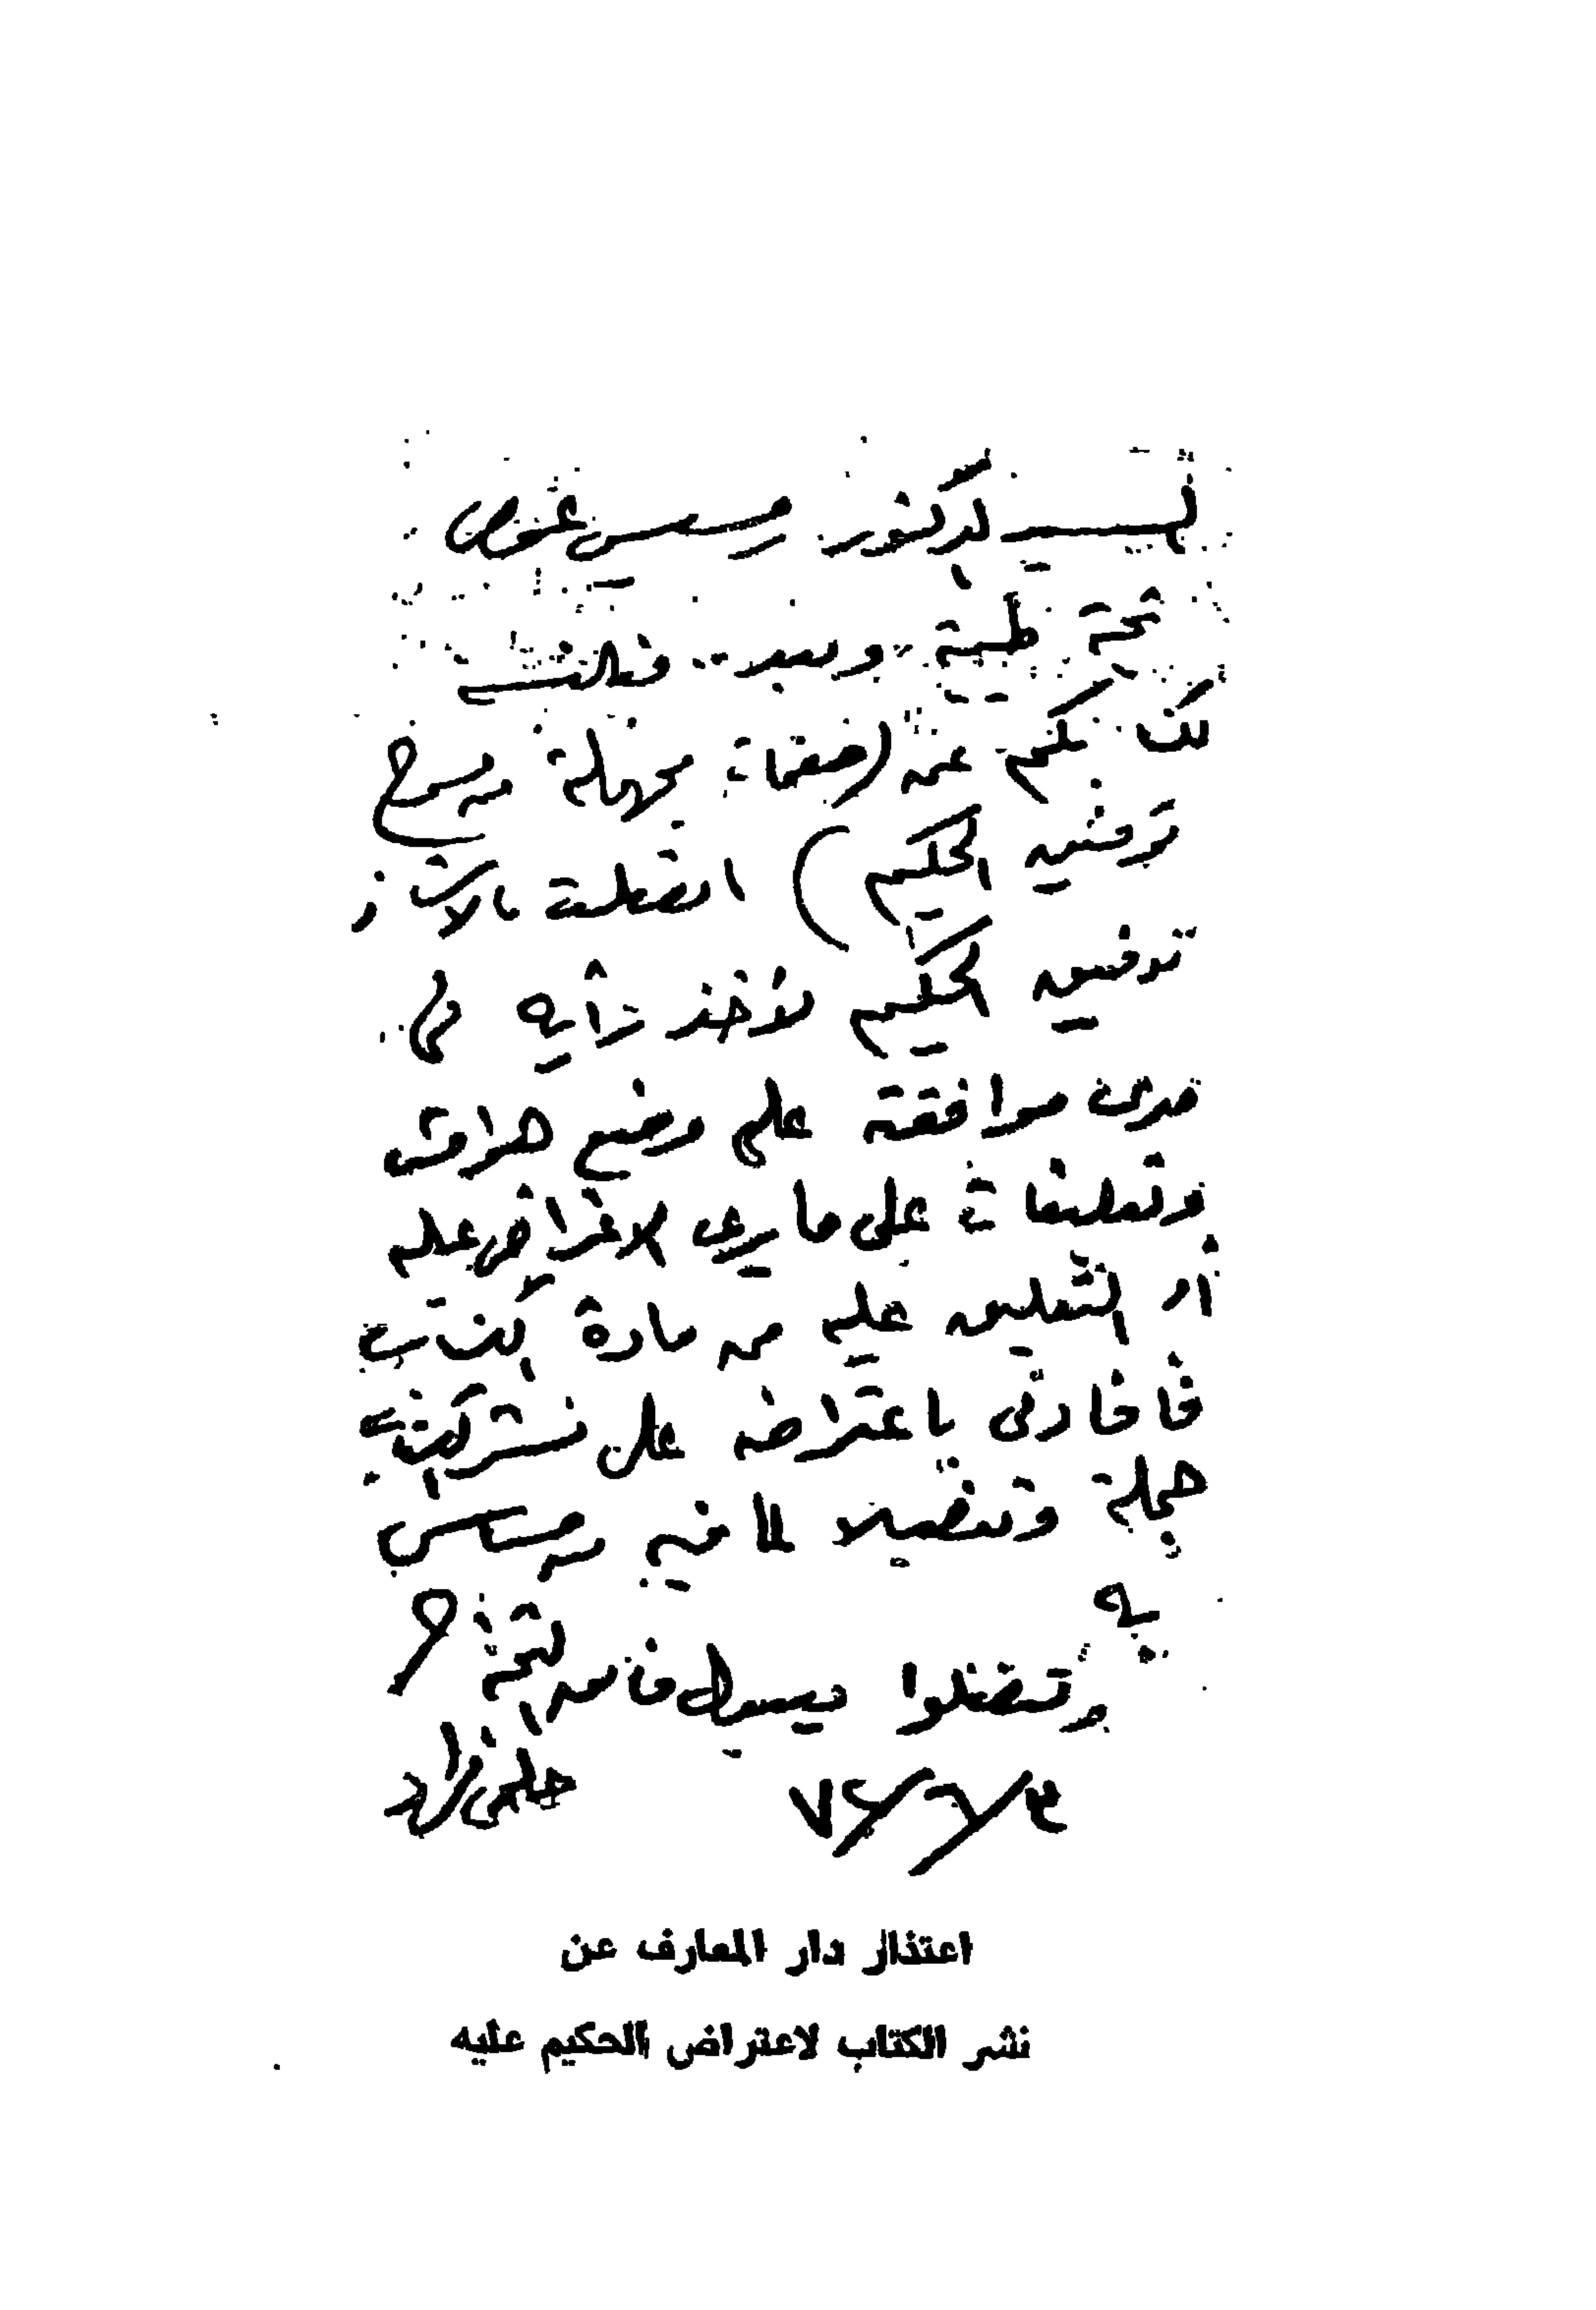 السيد الدكتور رمسيس عوض
تحية طيبة وبعد .. فبالنسبة
لكتابكم عن (صفحات مجهلة من مسرح
توفيق الحكيم) اتصلت بالاستاذ
توفيق الحكيم لأخذ رأيه فى
مدى موافقته على وضع هوامش
وتعليقات على ما يرى الاعتراض عليه
أو التعليق عليه من مادة الكتاب
فأفادنى باعتراضه على نشر الكتاب
جملة وتفصيلا لما فيه من مساس
به
وتفضلوا بقبول فائق التحية
٣/٦/٧٤
اعتذار دار المعارف عن
نشر الكتاب لاعتراض الحكيم عليه